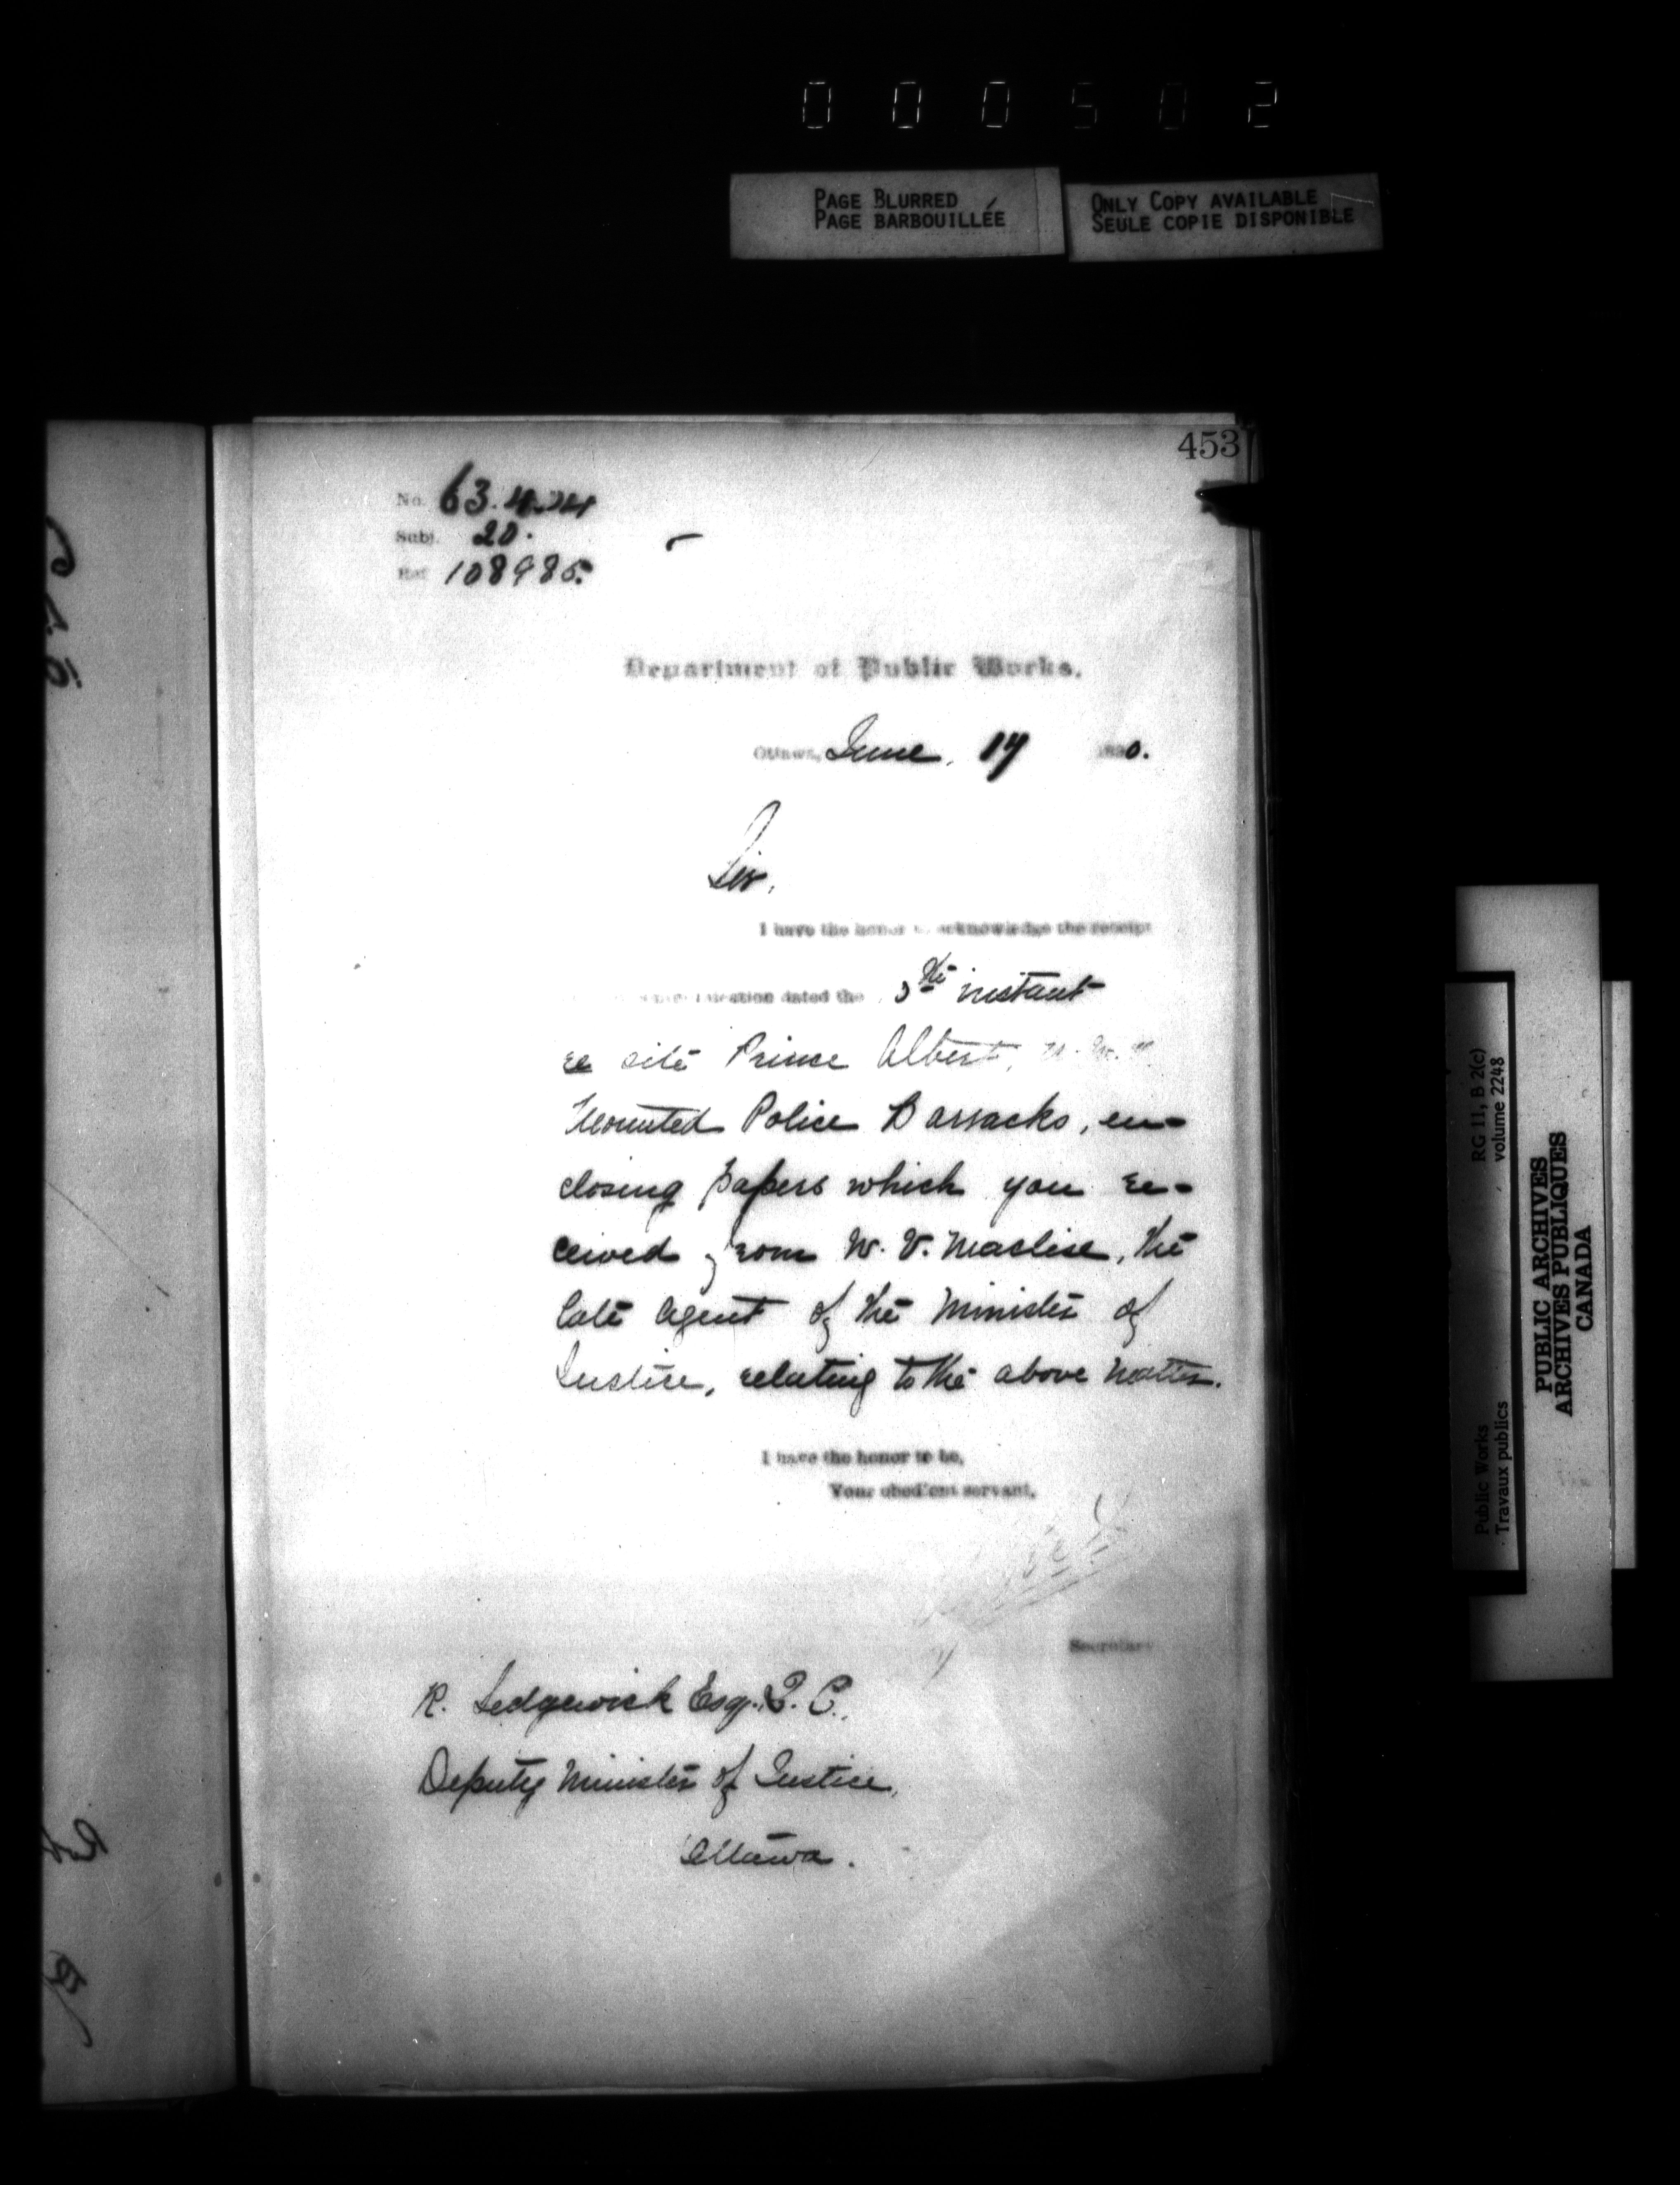 000502
PAGE BLURRED
PAGE BARBOUILLÉE
ONLY COPY AVAILABLE
SEULE COPIE DISPONIBLE
453
No.
Subj. 20.
Ref 108985.
Department of Public Works.
Ottawa, June, 17 1890.
Sir,
I have the honor to acknowledge the receipt
dated the 3th instant
re site Prince Albert, N.W.
Mounted Police Barracks, en-
closing papers which you re-
ceived from W. V. Maclise, the
late agent of the Minister of
Justice, relating to the above matter.
I have the honor to be,
Your obedient servant,
Secretary
R. Sedgewick Esq. Q. C.,
Deputy Minister of Justice,
Ottawa.
RG 11, B 2(c)
volume 2248
Public Works
Travaux publics
PUBLIC ARCHIVES
ARCHIVES PUBLIQUES
CANADA